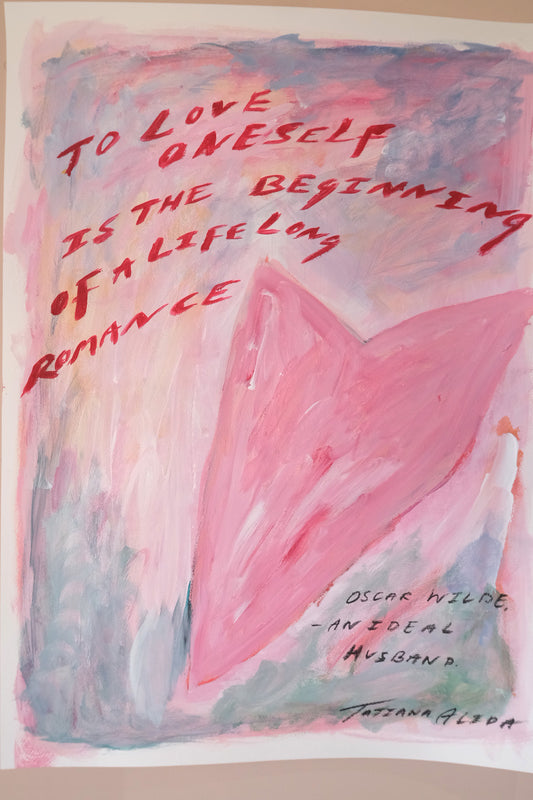 TO LOVE
ONESELF
IS THE BEGINNING
OF A LIFE LONG
ROMANCE
OSCAR WILDE.
- AN IDEAL
HUSBAND.
TATIANA ALIDA